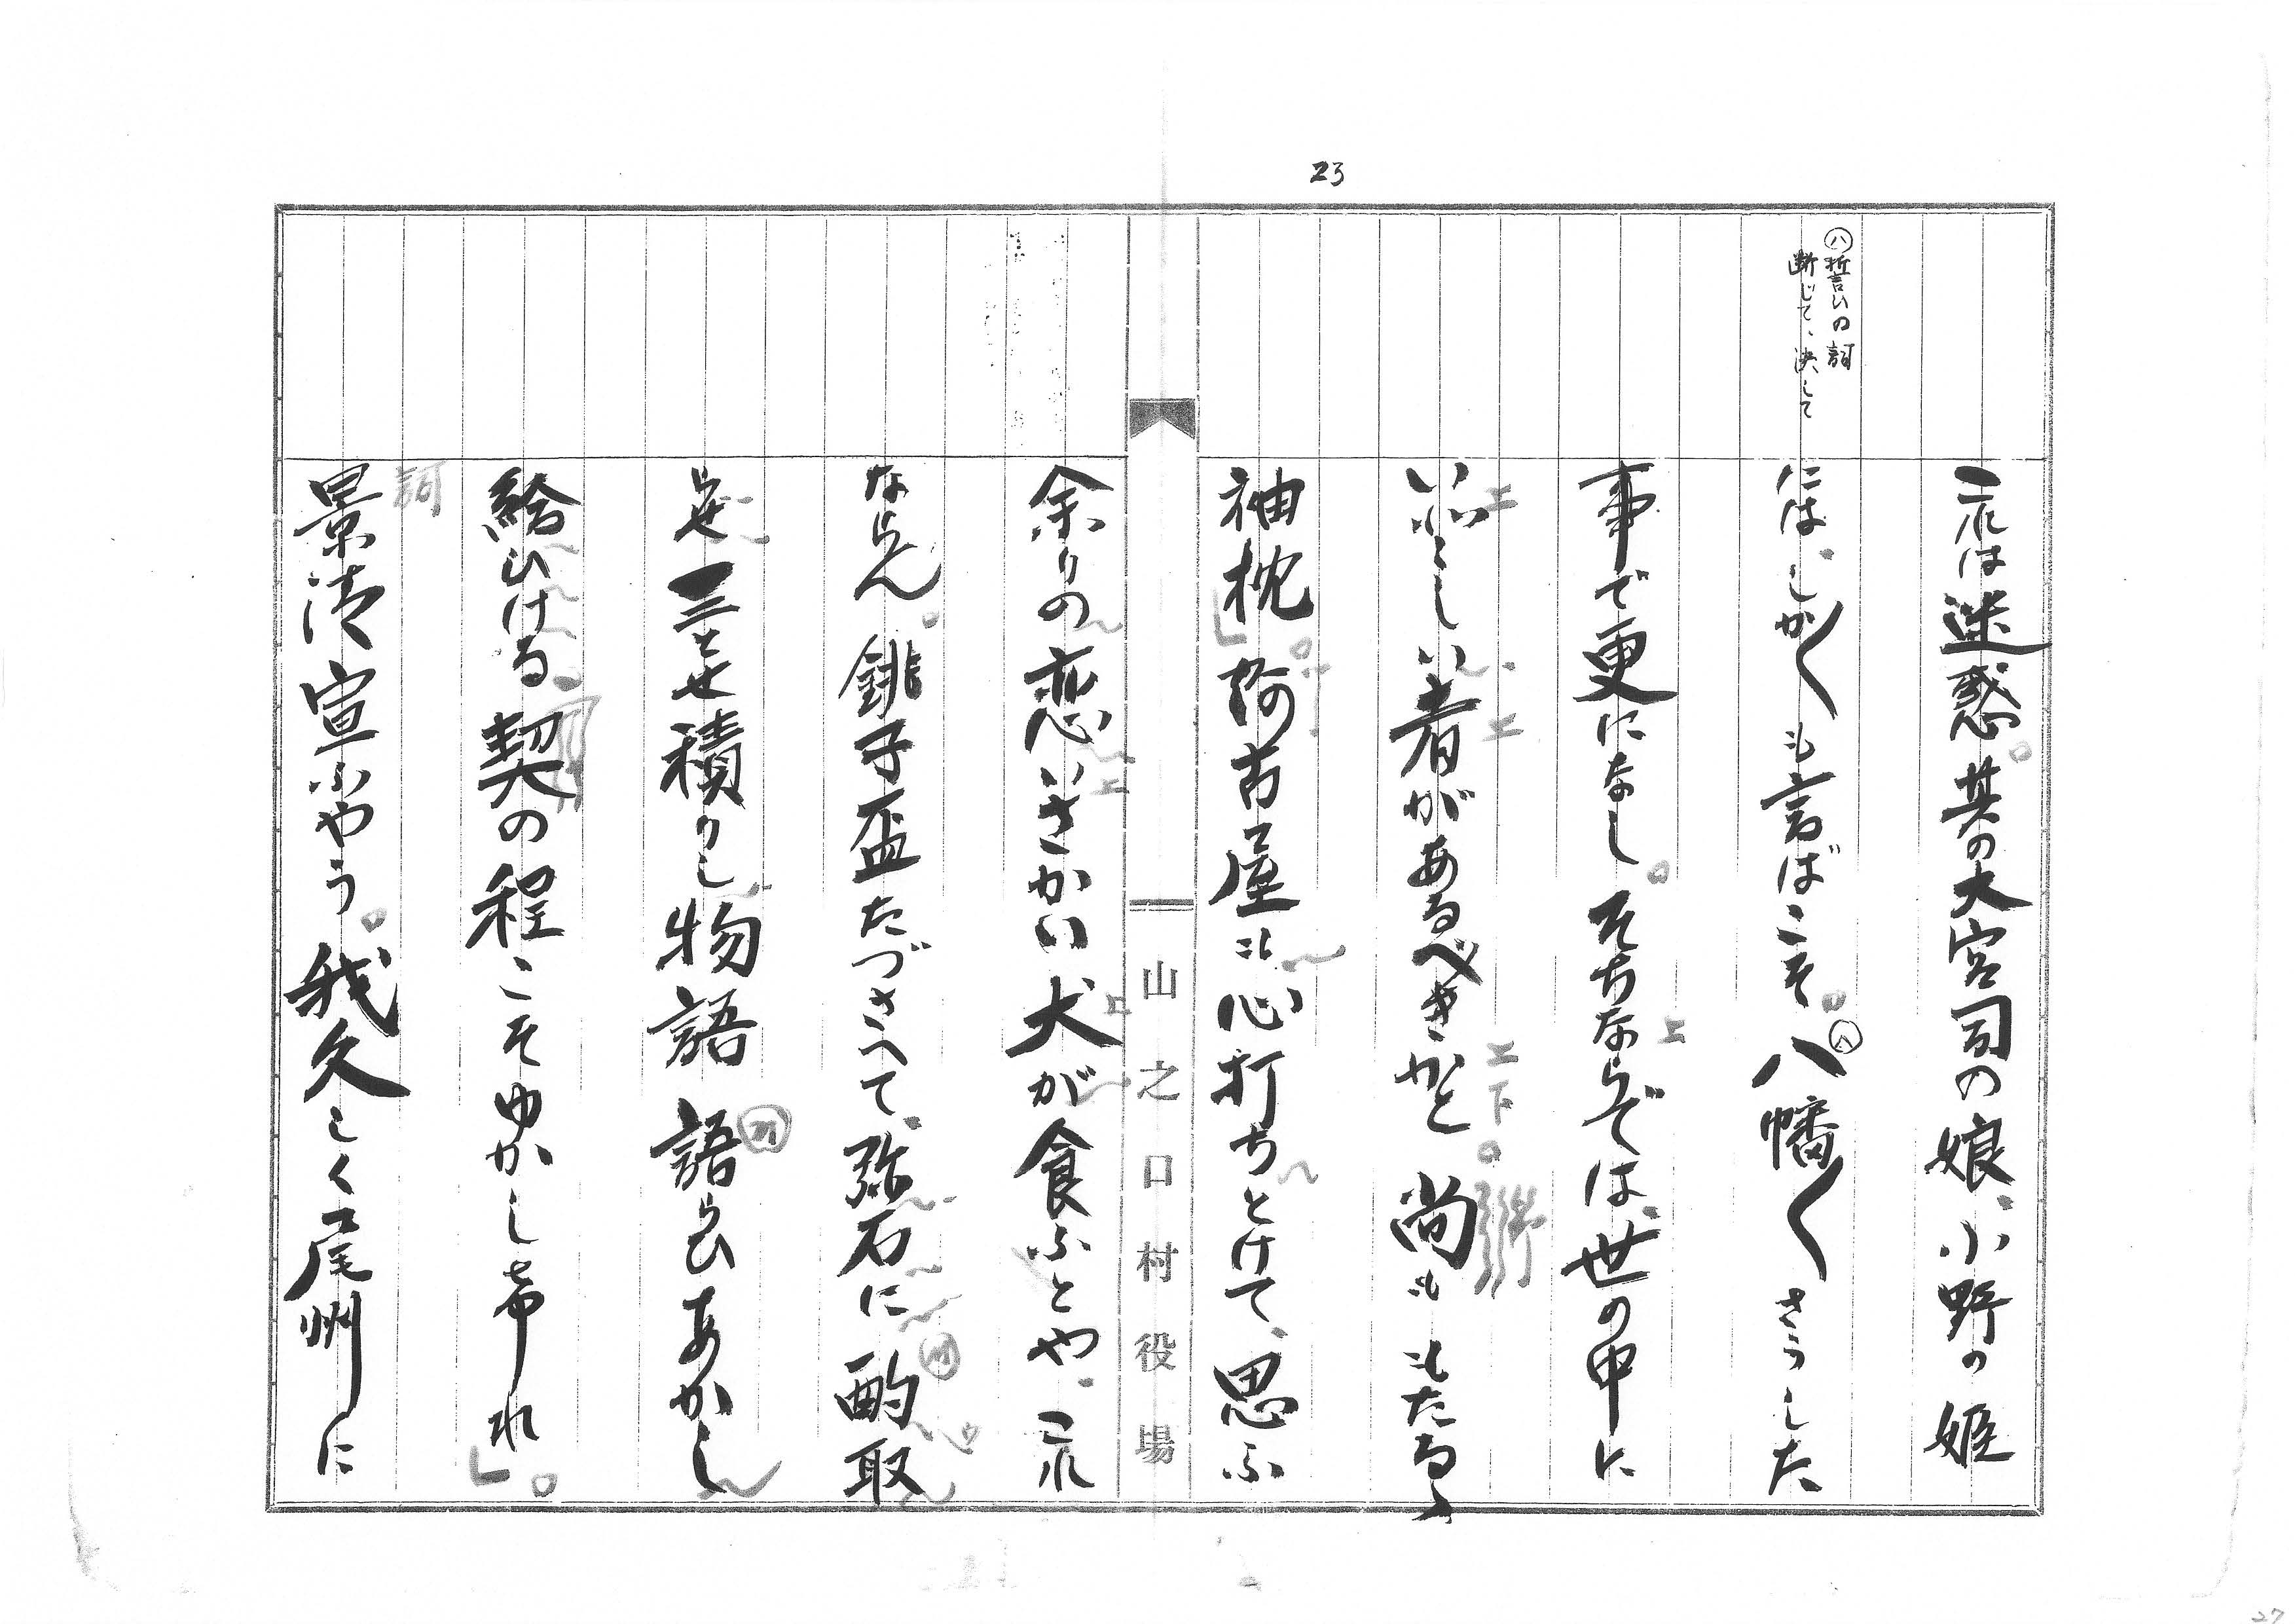 23
㋩誓いの詞
断じて、決して
これは迷惑。其の大宮司の娘、小野の姫
には、しか〱も言ばこそ。㋩八幡〱さうした
事で更になし。そちならでは、世の中に
いとしい者があるべきかと。尚も もたるゝ
袖枕」。阿古屋は心打ちとけて、思ふ
余りの恋いさかい犬が食ふとや、これ
ならん。銚子盃たづさへて、弥石に酌取
らせ三とせ積りし物語 語らひあかし
給ひける契の程こそゆかしけれ」。
詞
景清宣ふやう。我久しく尾州に
山之口村役場
27